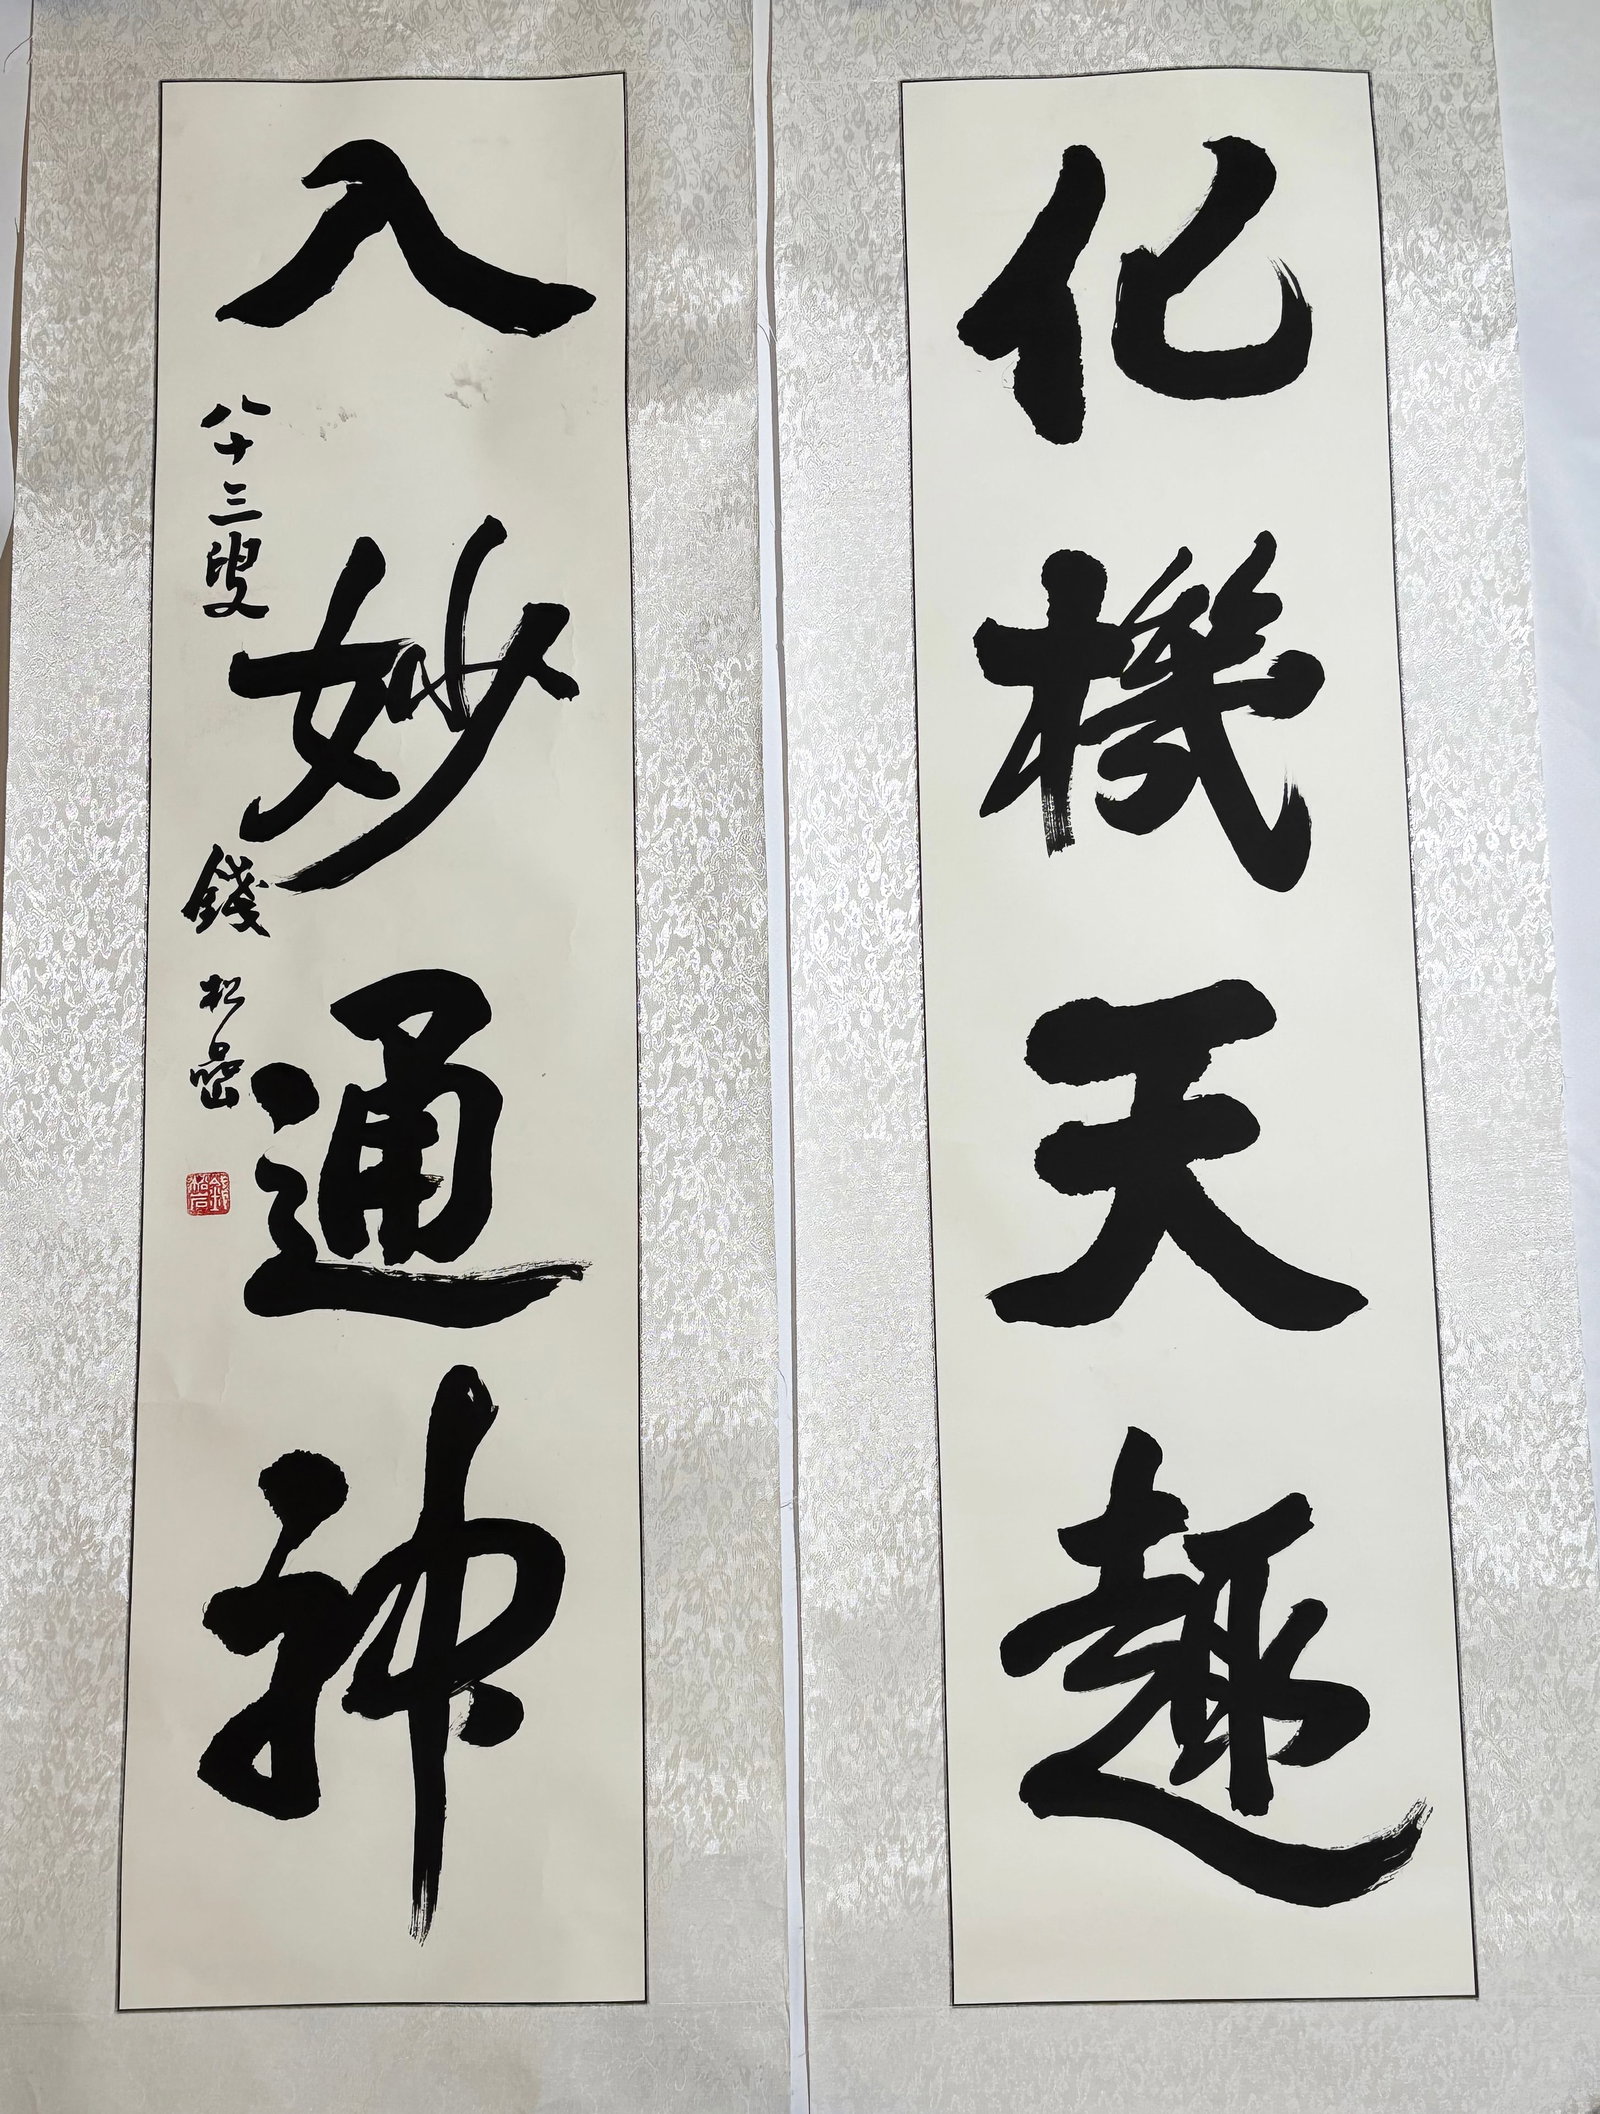 化機天趣
入妙通神
八十三叟 錢松嵒